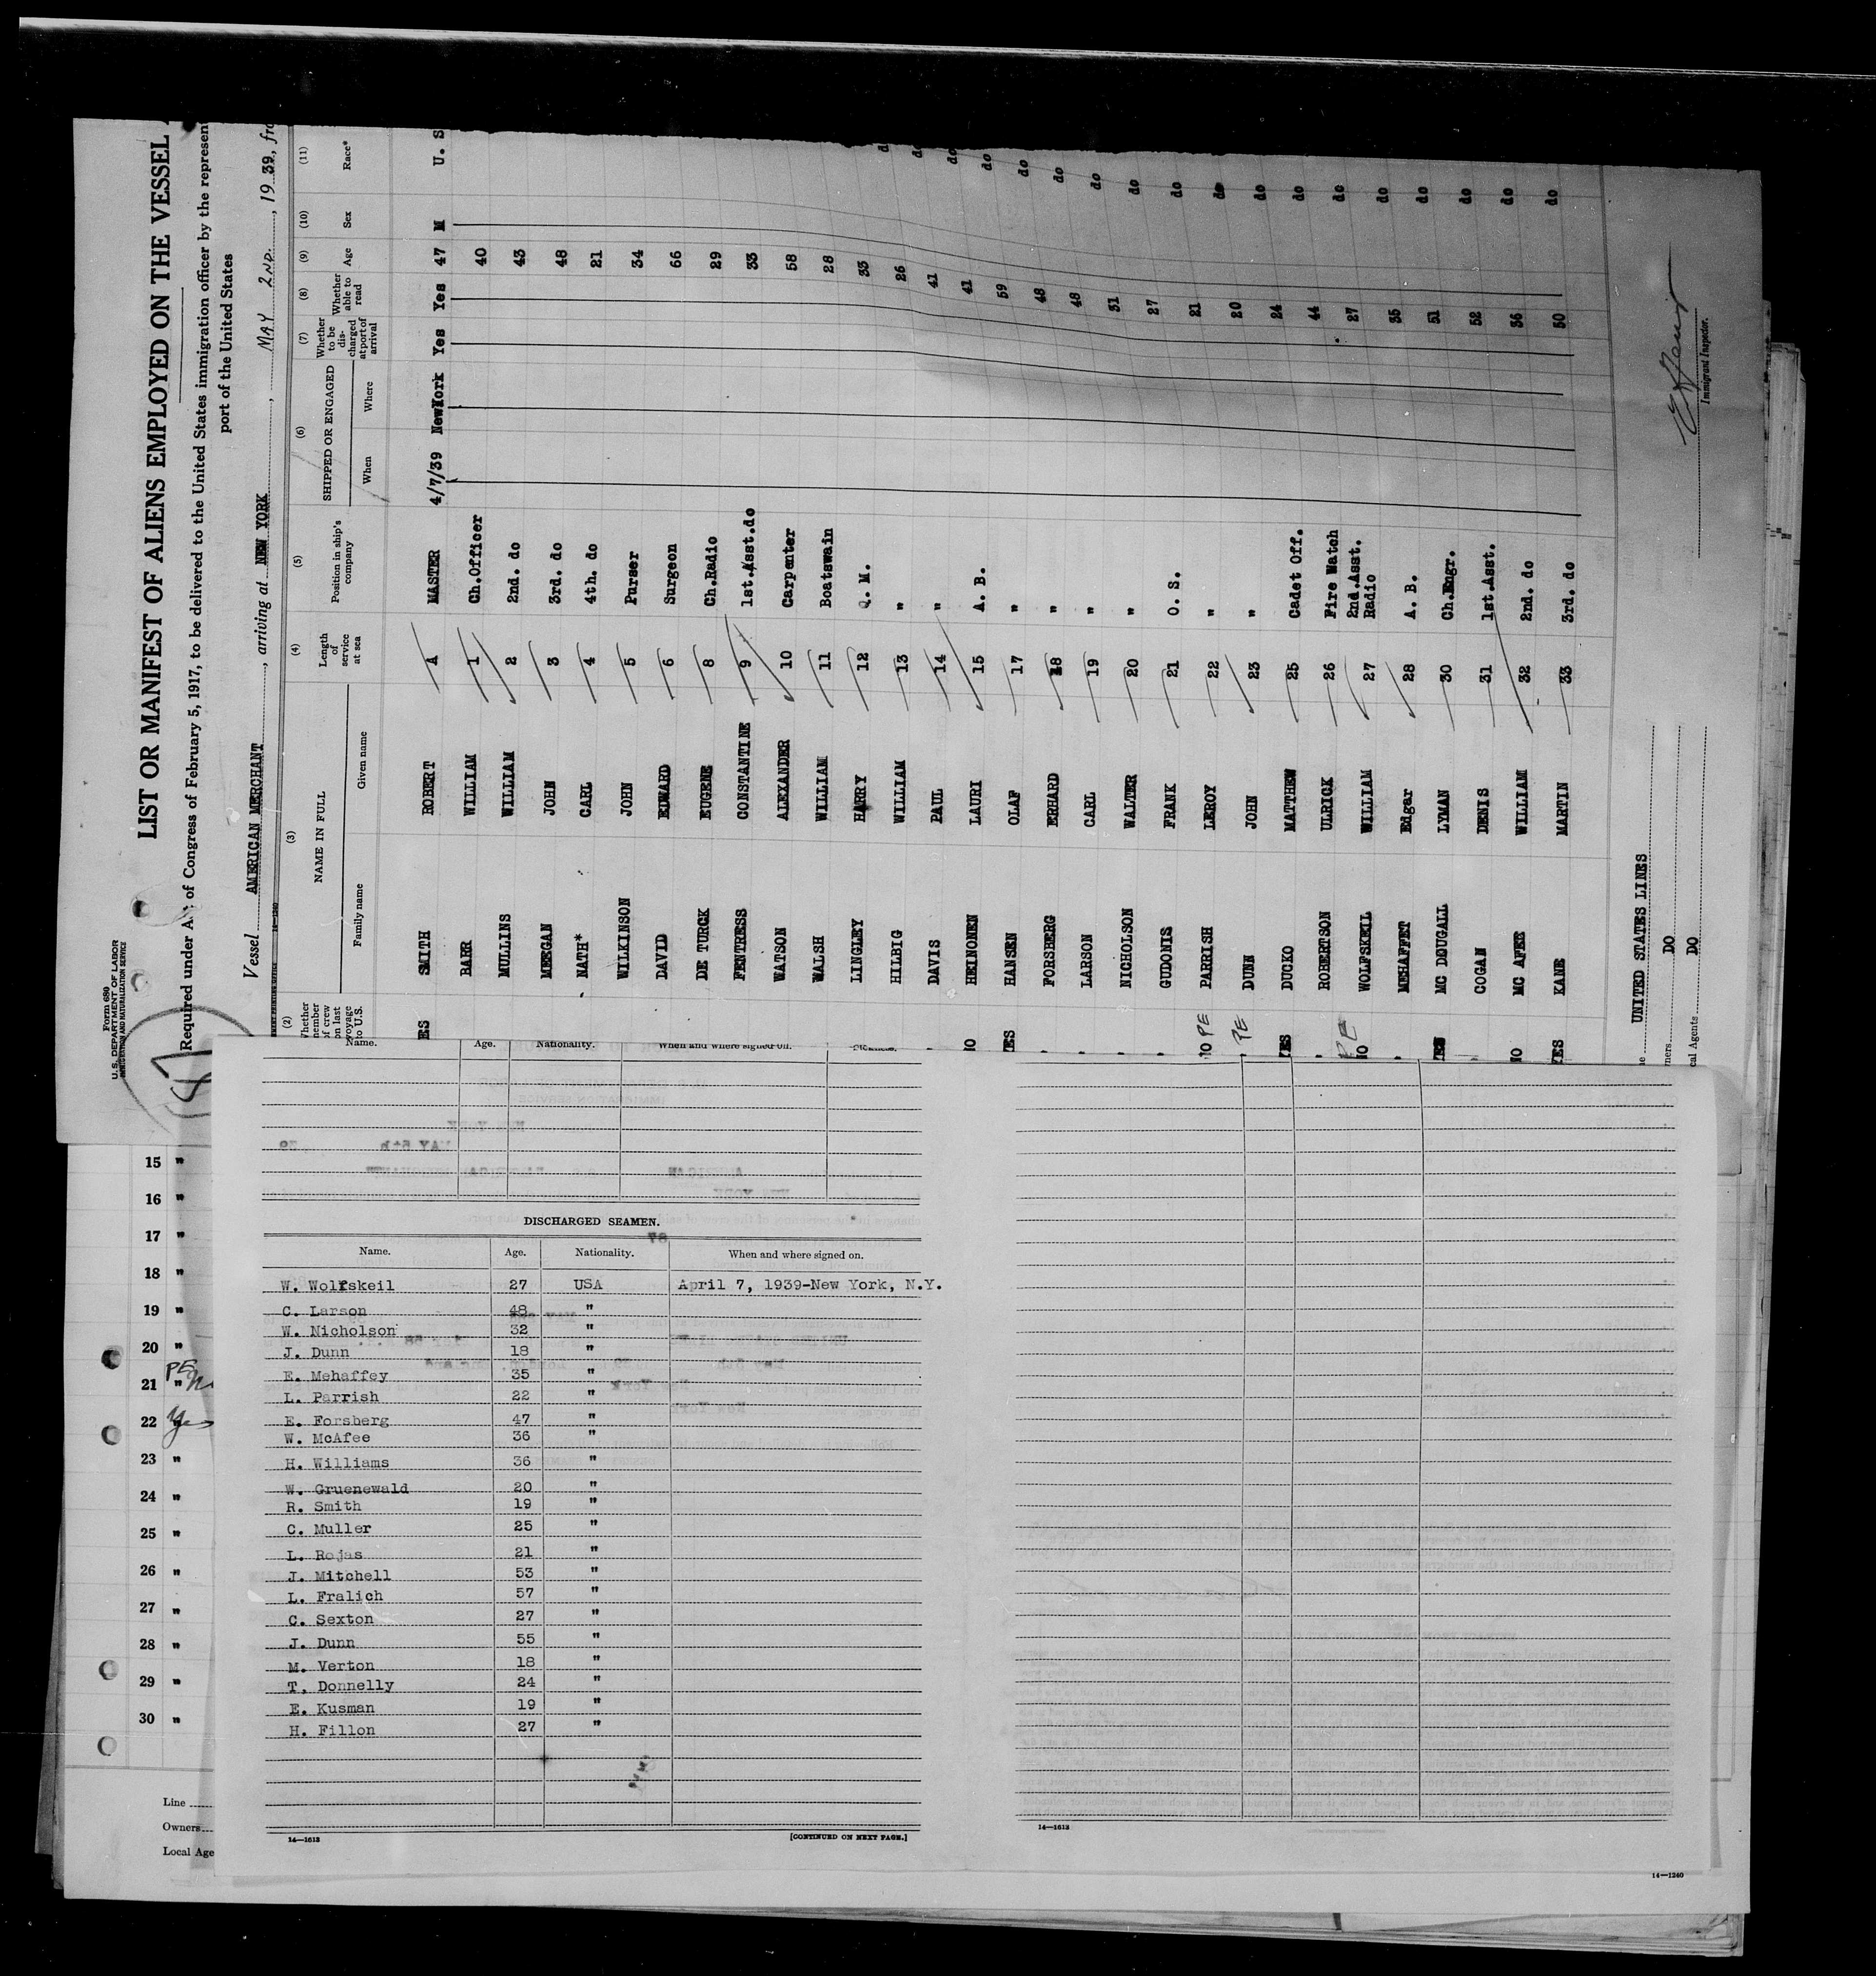 Form 680
U. S. DEPARTMENT OF LABOR
IMMIGRATION AND NATURALIZATION SERVICE
LIST OR MANIFEST OF ALIENS EMPLOYED ON THE VESSEL
Required under Act of Congress of February 5, 1917, to be delivered to the United States immigration officer by the represen
port of the United States
Vessel AMERICAN MERCHANT, arriving at NEW YORK, MAY 2ND., 1939, fro
(2) (3) (4) (5) (6) (7) (8) (9) (10) (11)
Whether member of crew on last voyage to U.S.
NAME IN FULL
Family name Given name
Length of service at sea
Position in ship's company
SHIPPED OR ENGAGED
When Where
Whether to be discharged at port of arrival
Whether able to read
Age Sex Race*
ES SMITH ROBERT A MASTER 4/7/39 NewYork Yes Yes 47 M U. S
BARR WILLIAM 1 Ch.Officer 40
MULLINS WILLIAM 2 2nd. do 43
MEEGAN JOHN 3 3rd. do 48
NATH* CARL 4 4th. do 21
WILKINSON JOHN 5 Purser 34
DAVID EDWARD 6 Surgeon 66
DE TURCK EUGENE 8 Ch.Radio 29
FENTRESS CONSTANTINE 9 1st.Asst.do 33
WATSON ALEXANDER 10 Carpenter 58
WALSH WILLIAM 11 Boatswain 28
LINGLEY HARRY 12 Q. M. 33 do
HILBIG WILLIAM 13 " 26 do
DAVIS PAUL 14 " 41 do
NO HEINONEN LAURI 15 A. B. 41 do
YES HANSEN OLAF 17 " 59 do
FORSBERG ERHARD 18 " 48 do
LARSON CARL 19 " 48 do
NICHOLSON WALTER 20 " 31 do
GUDONIS FRANK 21 O. S. 27 do
NO PE PARRISH LEROY 22 " 21 do
PE DUNN JOHN 23 " 20 do
YES DUCKO MATTHEW 25 Cadet Off. 24 do
ROBERTSON ULRICK 26 Fire Watch 44 do
NO PE WOLFSKEIL WILLIAM 27 2nd.Asst. Radio 27 do
MEHAFFET Edgar 28 A. B. 35 do
YES MC DOUGALL LYMAN 30 Ch.Engr. 51 do
COGAN DENIS 31 1st.Asst. 52 do
NO MC AFEE WILLIAM 32 2nd. do 36 do
YES KANE MARTIN 33 3rd. do 50 do
UNITED STATES LINES
DO
Local Agents DO
Immigrant Inspector.
Name. Age. Nationality. When and where signed on.
DISCHARGED SEAMEN.
Name. Age. Nationality. When and where signed on.
W. Wolfskeil 27 USA April 7, 1939-New York, N.Y.
C. Larson 48 "
W. Nicholson 32 "
J. Dunn 18 "
E. Mehaffey 35 "
L. Parrish 22 "
E. Forsberg 47 "
W. McAfee 36 "
H. Williams 36 "
W. Gruenewald 20 "
R. Smith 19 "
C. Muller 25 "
L. Rojas 21 "
J. Mitchell 53 "
L. Fralich 57 "
C. Sexton 27 "
J. Dunn 55 "
M. Verton 18 "
T. Donnelly 24 "
E. Kusman 19 "
H. Fillon 27 "
14—1613 [CONTINUED ON NEXT PAGE.]
14—1613
15 "
16 "
17 "
18 "
19 "
20 "
PE
21 "
22 Yes
23 "
24 "
25 "
26 "
27 "
28 "
29 "
30 "
Line
Owners
Local Age
14—1240